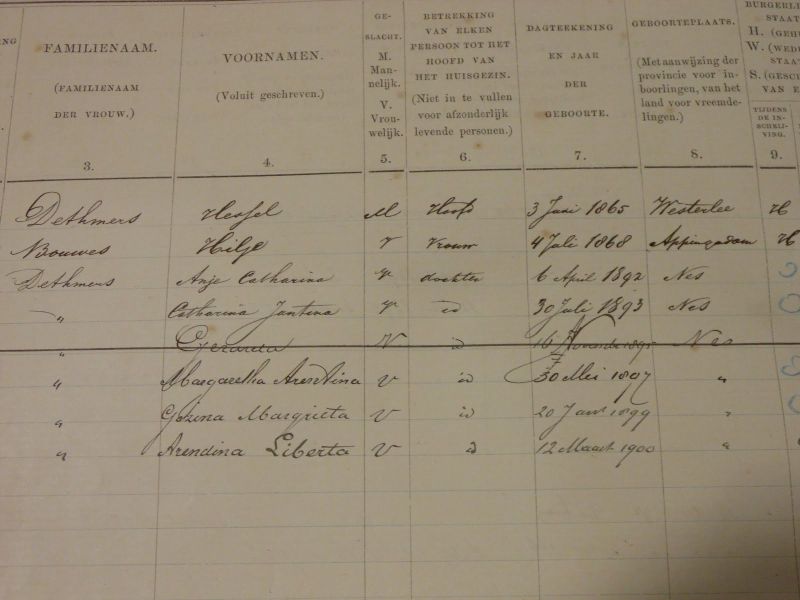 NG
FAMILIENAAM.
(FAMILIENAAM
DER VROUW.)
3.
VOORNAMEN.
(Voluit geschreven.)
4.
GE-
SLACHT.
M.
Man-
nelijk.
V.
Vrou-
welijk.
5.
BETREKKING
VAN ELKEN
PERSOON TOT HET
HOOFD VAN
HET HUISGEZIN.
(Niet in te vullen
voor afzonderlijk
levende personen.)
6.
DAGTEEKENING
EN JAAR
DER
GEBOORTE.
7.
GEBOORTEPLAATS.
(Met aanwijzing der
provincie voor in-
boorlingen, van het
land voor vreemde-
lingen.)
8.
BURGERLI
STAAT
H. (GEHU
W. (WEDU
STAAT
S. (GESC
VAN E
TIJDENS
DE IN-
SCHRIJ-
VING.
9.
Dethmers Hessel M Hoofd 3 Juni 1865 Westerlee H
Bouwes Hilje V Vrouw 4 Juli 1868 Appingadam H
Dethmers Anje Catharina V dochter 6 April 1892 Nes
" Catharina Jantina V id 30 Juli 1893 Nes
" Gerarda V id 16 November 1895 Nes
" Margaretha Arendina V id 30 Mei 1897 "
" Gezina Margrieta V id 20 Jan 1899 "
" Arendina Liberta V id 12 Maart 1900 "